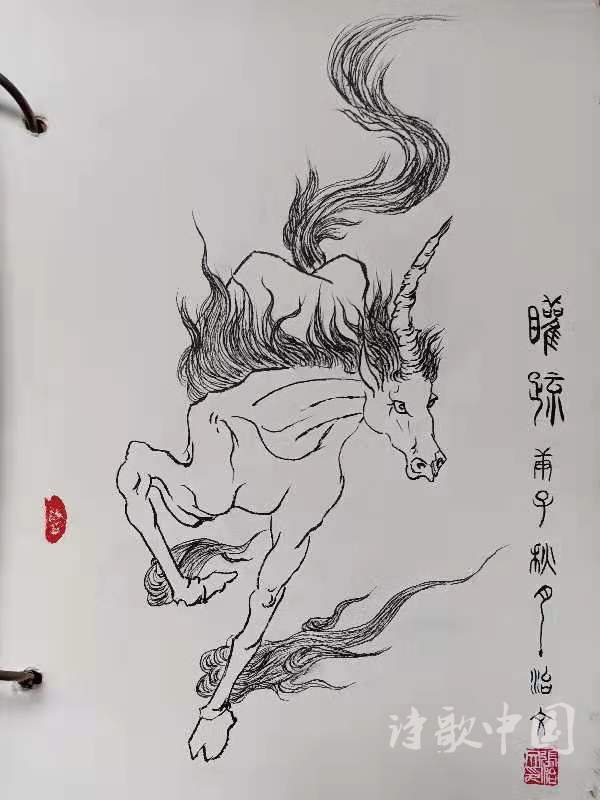 矔疏 庚子秋月 治文
诗歌中国